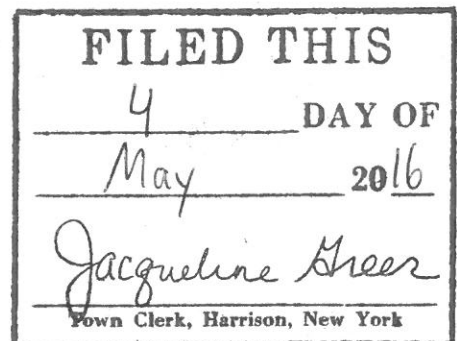 FILED THIS
4 DAY OF
May 2016
Jacqueline Greer
Town Clerk, Harrison, New York